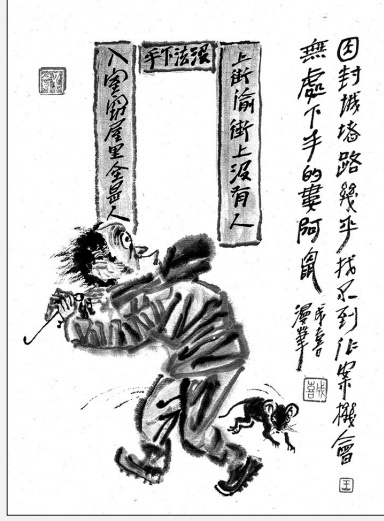 因封城堵路幾乎找不到作案機會
無處下手的婁阿鼠
漫筆
没法下手
上街偷街上沒有人
入室竊屋里全是人